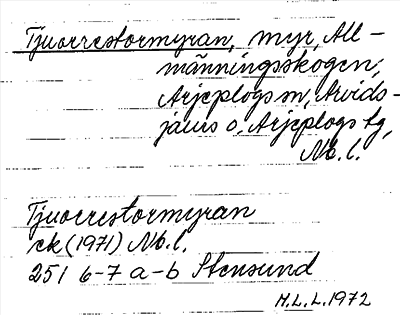 Tjuorrestormyran, myr, All-
männingsskogen,
Arjeplogs sn, Arvids-
jaurs o, Arjeplogs tg,
Nb. l.
Tjuorrestormyran
ek (1971) Nb. l.
25 I 6-7 a-b Stensund
M.L.L. 1972